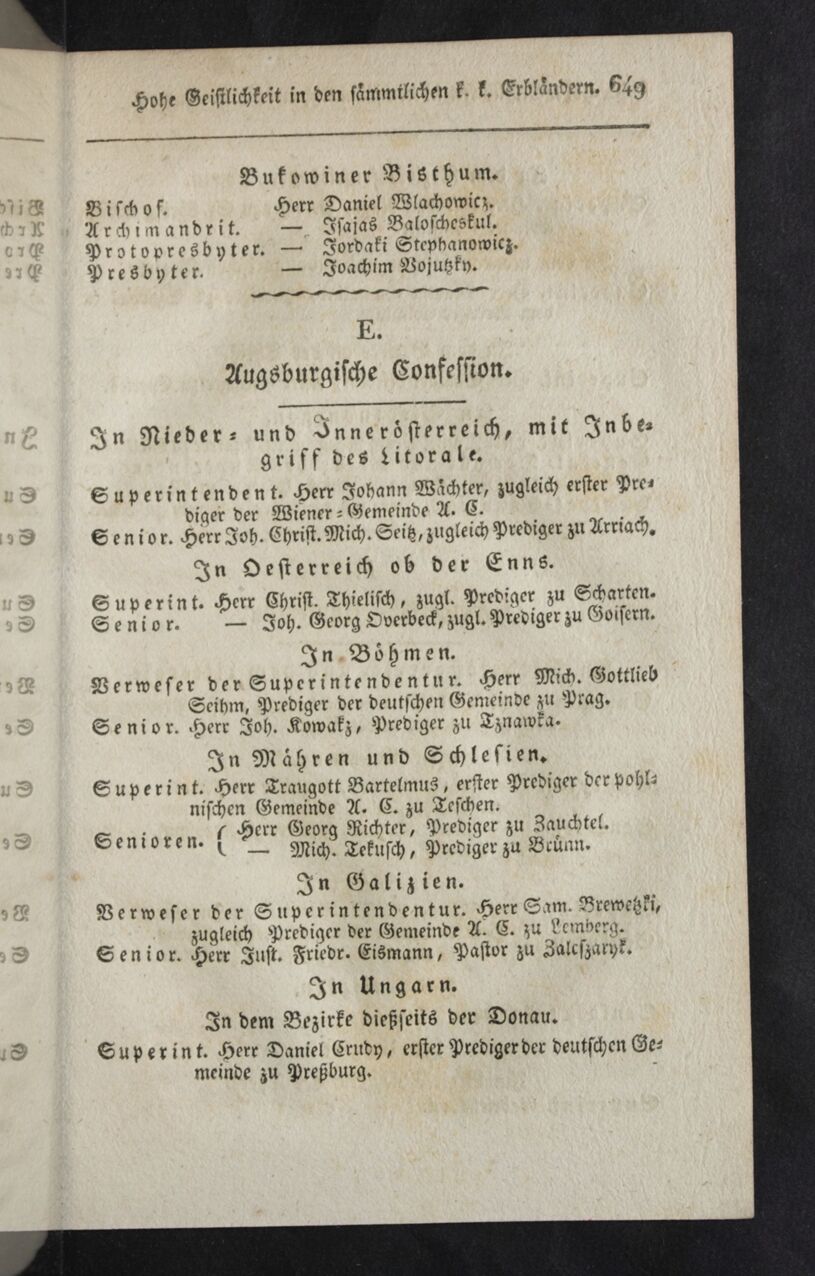 Hohe Geistlichkeit in den sämmtlichen k. k. Erbländern. 649
Bukowiner Bisthum.
Bischof. Herr Daniel Wlachowicz.
Archimandrit. — Isajas Baloscheskul.
Protopresbyter. — Jordaki Stephanowicz.
Presbyter. — Joachim Vojutzky.
E.
Augsburgische Confession.
In Nieder- und Innerösterreich, mit Inbe-
griff des Litorale.
Superintendent. Herr Johann Wächter, zugleich erster Pre-
diger der Wiener-Gemeinde A. C.
Senior. Herr Joh. Christ. Mich. Seitz, zugleich Prediger zu Arriach.
In Oesterreich ob der Enns.
Superint. Herr Christ. Thielisch, zugl. Prediger zu Scharten.
Senior. — Joh. Georg Overbeck, zugl. Prediger zu Goisern.
In Böhmen.
Verweser der Superintendentur. Herr Mich. Gottlieb
Seihm, Prediger der deutschen Gemeinde zu Prag.
Senior. Herr Joh. Kowakz, Prediger zu Tznawka.
In Mähren und Schlesien.
Superint. Herr Traugott Bartelmus, erster Prediger der pohl-
nischen Gemeinde A. C. zu Teschen.
Senioren. { Herr Georg Richter, Prediger zu Zauchtel.
— Mich. Tekusch, Prediger zu Brünn.
In Galizien.
Verweser der Superintendentur. Herr Sam. Brewetzki,
zugleich Prediger der Gemeinde A. C. zu Lemberg.
Senior. Herr Just. Friedr. Eismann, Pastor zu Zaleszaryk.
In Ungarn.
In dem Bezirke dießseits der Donau.
Superint. Herr Daniel Crudy, erster Prediger der deutschen Ge-
meinde zu Preßburg.